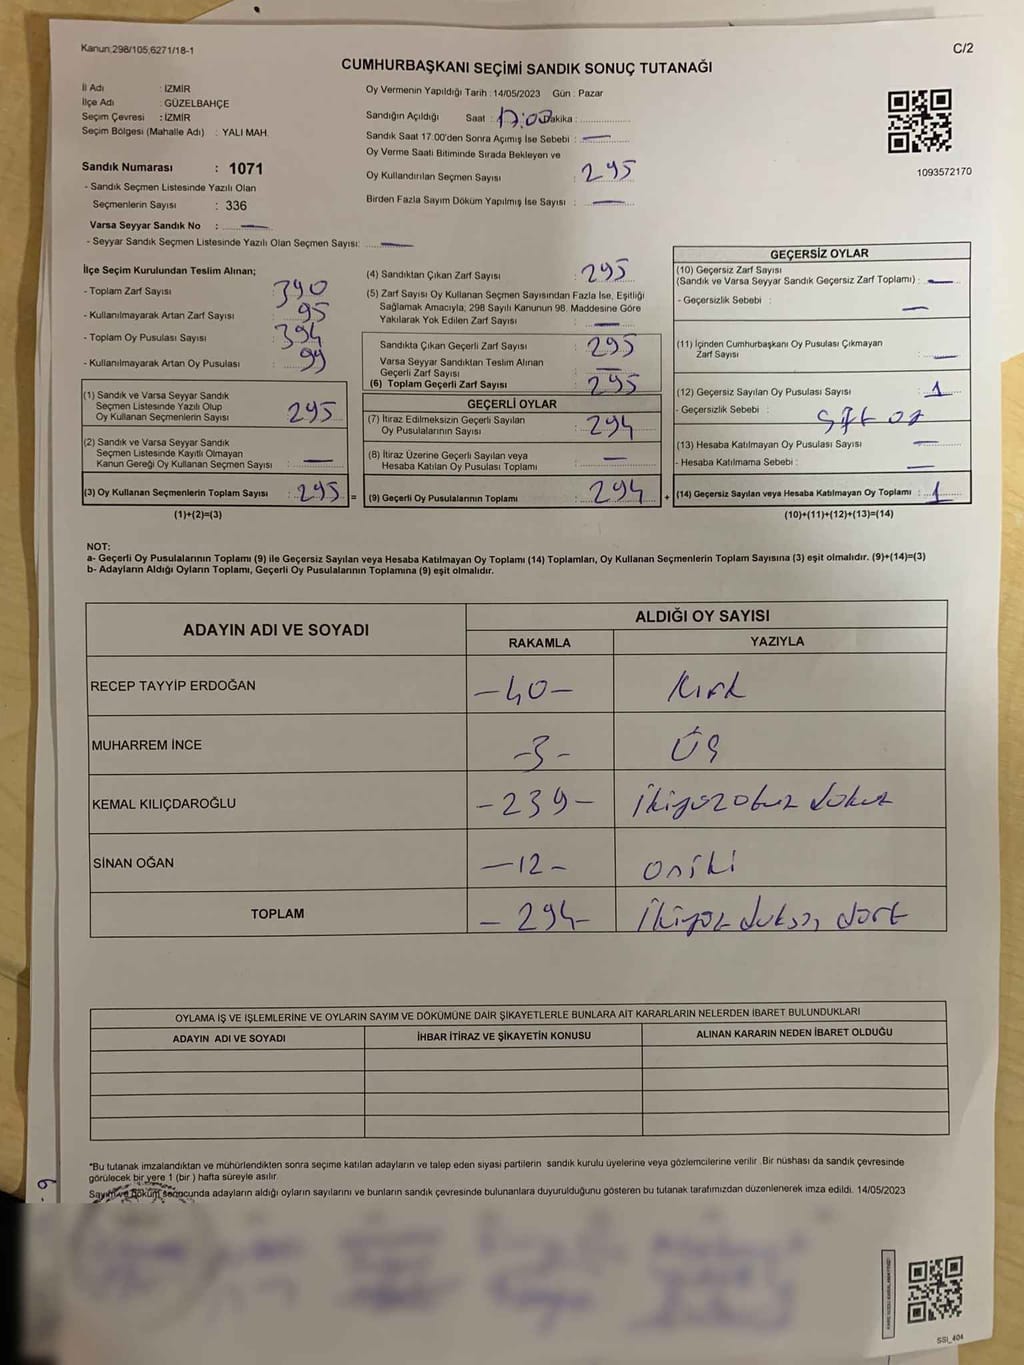 Kanun:298/105,6271/18-1
C/2
CUMHURBAŞKANI SEÇİMİ SANDIK SONUÇ TUTANAĞI
İl Adı : İZMİR
İlçe Adı : GÜZELBAHÇE
Seçim Çevresi : İZMİR
Seçim Bölgesi (Mahalle Adı) : YALI MAH.
Sandık Numarası : 1071
- Sandık Seçmen Listesinde Yazılı Olan
Seçmenlerin Sayısı : 336
Varsa Seyyar Sandık No : —
- Seyyar Sandık Seçmen Listesinde Yazılı Olan Seçmen Sayısı: —
Oy Vermenin Yapıldığı Tarih : 14/05/2023 Gün : Pazar
Sandığın Açıldığı Saat : 17:00 Dakika :
Sandık Saat 17.00'den Sonra Açımış İse Sebebi : —
Oy Verme Saati Bitiminde Sırada Bekleyen ve
Oy Kullandırılan Seçmen Sayısı : 295
Birden Fazla Sayım Döküm Yapılmış İse Sayısı : —
1093572170
İlçe Seçim Kurulundan Teslim Alınan;
- Toplam Zarf Sayısı : 390
- Kullanılmayarak Artan Zarf Sayısı : 95
- Toplam Oy Pusulası Sayısı : 394
- Kullanılmayarak Artan Oy Pusulası : 99
(1) Sandık ve Varsa Seyyar Sandık
Seçmen Listesinde Yazılı Olup
Oy Kullanan Seçmenlerin Sayısı : 295
(2) Sandık ve Varsa Seyyar Sandık
Seçmen Listesinde Kayıtlı Olmayan
Kanun Gereği Oy Kullanan Seçmen Sayısı : —
(3) Oy Kullanan Seçmenlerin Toplam Sayısı : 295 =
(1)+(2)=(3)
(4) Sandıktan Çıkan Zarf Sayısı : 295
(5) Zarf Sayısı Oy Kullanan Seçmen Sayısından Fazla İse, Eşitliği
Sağlamak Amacıyla; 298 Sayılı Kanunun 98. Maddesine Göre
Yakılarak Yok Edilen Zarf Sayısı : —
Sandıkta Çıkan Geçerli Zarf Sayısı : 295
Varsa Seyyar Sandıktan Teslim Alınan
Geçerli Zarf Sayısı : —
(6) Toplam Geçerli Zarf Sayısı : 295
GEÇERLİ OYLAR
(7) İtiraz Edilmeksizin Geçerli Sayılan
Oy Pusulalarının Sayısı : 294
(8) İtiraz Üzerine Geçerli Sayılan veya
Hesaba Katılan Oy Pusulası Toplamı : —
(9) Geçerli Oy Pusulalarının Toplamı : 294 +
GEÇERSİZ OYLAR
(10) Geçersiz Zarf Sayısı
(Sandık ve Varsa Seyyar Sandık Geçersiz Zarf Toplamı) : —
- Geçersizlik Sebebi : —
(11) İçinden Cumhurbaşkanı Oy Pusulası Çıkmayan
Zarf Sayısı : —
(12) Geçersiz Sayılan Oy Pusulası Sayısı : 1
- Geçersizlik Sebebi : Çift oy
(13) Hesaba Katılmayan Oy Pusulası Sayısı : —
- Hesaba Katılmama Sebebi : —
(14) Geçersiz Sayılan veya Hesaba Katılmayan Oy Toplamı : 1
(10)+(11)+(12)+(13)=(14)
NOT:
a- Geçerli Oy Pusulalarının Toplamı (9) ile Geçersiz Sayılan veya Hesaba Katılmayan Oy Toplamı (14) Toplamları, Oy Kullanan Seçmenlerin Toplam Sayısına (3) eşit olmalıdır. (9)+(14)=(3)
b- Adayların Aldığı Oyların Toplamı, Geçerli Oy Pusulalarının Toplamına (9) eşit olmalıdır.
ADAYIN ADI VE SOYADI
ALDIĞI OY SAYISI
RAKAMLA YAZIYLA
RECEP TAYYİP ERDOĞAN -40- Kırk
MUHARREM İNCE -3- Üç
KEMAL KILIÇDAROĞLU -239- İkiyüzotuz dokuz
SİNAN OĞAN -12- oniki
TOPLAM -294- İkiyüz doksan dört
OYLAMA İŞ VE İŞLEMLERİNE VE OYLARIN SAYIM VE DÖKÜMÜNE DAİR ŞİKAYETLERLE BUNLARA AİT KARARLARIN NELERDEN İBARET BULUNDUKLARI
ADAYIN ADI VE SOYADI İHBAR İTİRAZ VE ŞİKAYETİN KONUSU ALINAN KARARIN NEDEN İBARET OLDUĞU
*Bu tutanak imzalandıktan ve mühürlendikten sonra seçime katılan adayların ve talep eden siyasi partilerin sandık kurulu üyelerine veya gözlemcilerine verilir. Bir nüshası da sandık çevresinde
görülecek bir yere 1 (bir ) hafta süreyle asılır.
Sayım ve döküm sonucunda adayların aldığı oyların sayılarını ve bunların sandık çevresinde bulunanlara duyurulduğunu gösteren bu tutanak tarafımızdan düzenlenerek imza edildi. 14/05/2023
SSI_404